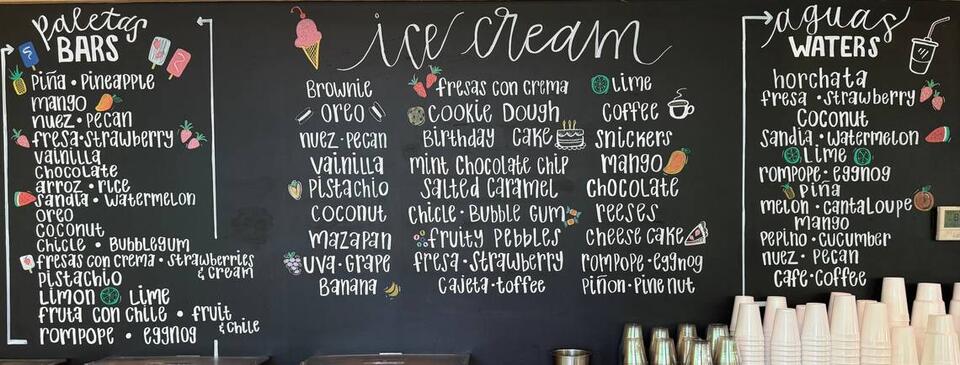 Paletas
BARS
piña • pineapple
mango
nuez • pecan
fresa • strawberry
vainilla
chocolate
arroz • rice
sandia • watermelon
oreo
coconut
chicle • Bubblegum
fresas con crema • strawberries
& cream
pistachio
limon lime
fruta con chile • fruit
& chile
rompope • eggnog
ice cream
Brownie
oreo
nuez • pecan
vainilla
pistachio
coconut
mazapan
uva • grape
Banana
fresas con crema
cookie Dough
Birthday cake
mint chocolate chip
salted caramel
chicle • Bubble gum
fruity pebbles
fresa • strawberry
cajeta • toffee
lime
coffee
snickers
mango
chocolate
reeses
cheese cake
rompope • eggnog
piñon • pine nut
aguas
WATERS
horchata
fresa • strawberry
coconut
sandia • watermelon
lime
rompope • eggnog
piña
melon • cantaloupe
mango
pepino • cucumber
nuez • pecan
cafe • coffee